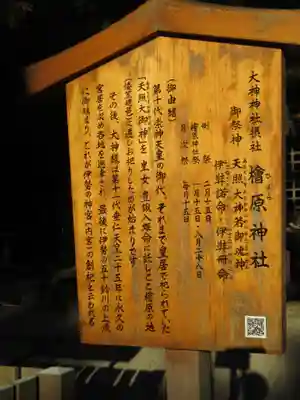 大神神社摂社 檜原神社
ひばら
御祭神 天照大神若御魂神
伊弉諾命 伊弉冊命
例祭 二月十五日
檜原神社祭 一月十五日・八月二十八日
月次祭 毎月十五日
(御由緒)
第十代崇神天皇の御代、それまで皇居で祀られていた
「天照大御神」を皇女豊鍬入姫命に託しここ檜原の地
(倭笠縫邑)に遷しお祀りしたのが始まりです。
その後、大神様は第十一代垂仁天皇二十五年に永久の
宮居を求め各地を巡幸され、最後に伊勢の五十鈴川の上流
に御鎮まり、これが伊勢の神宮(内宮)の創祀と云われる